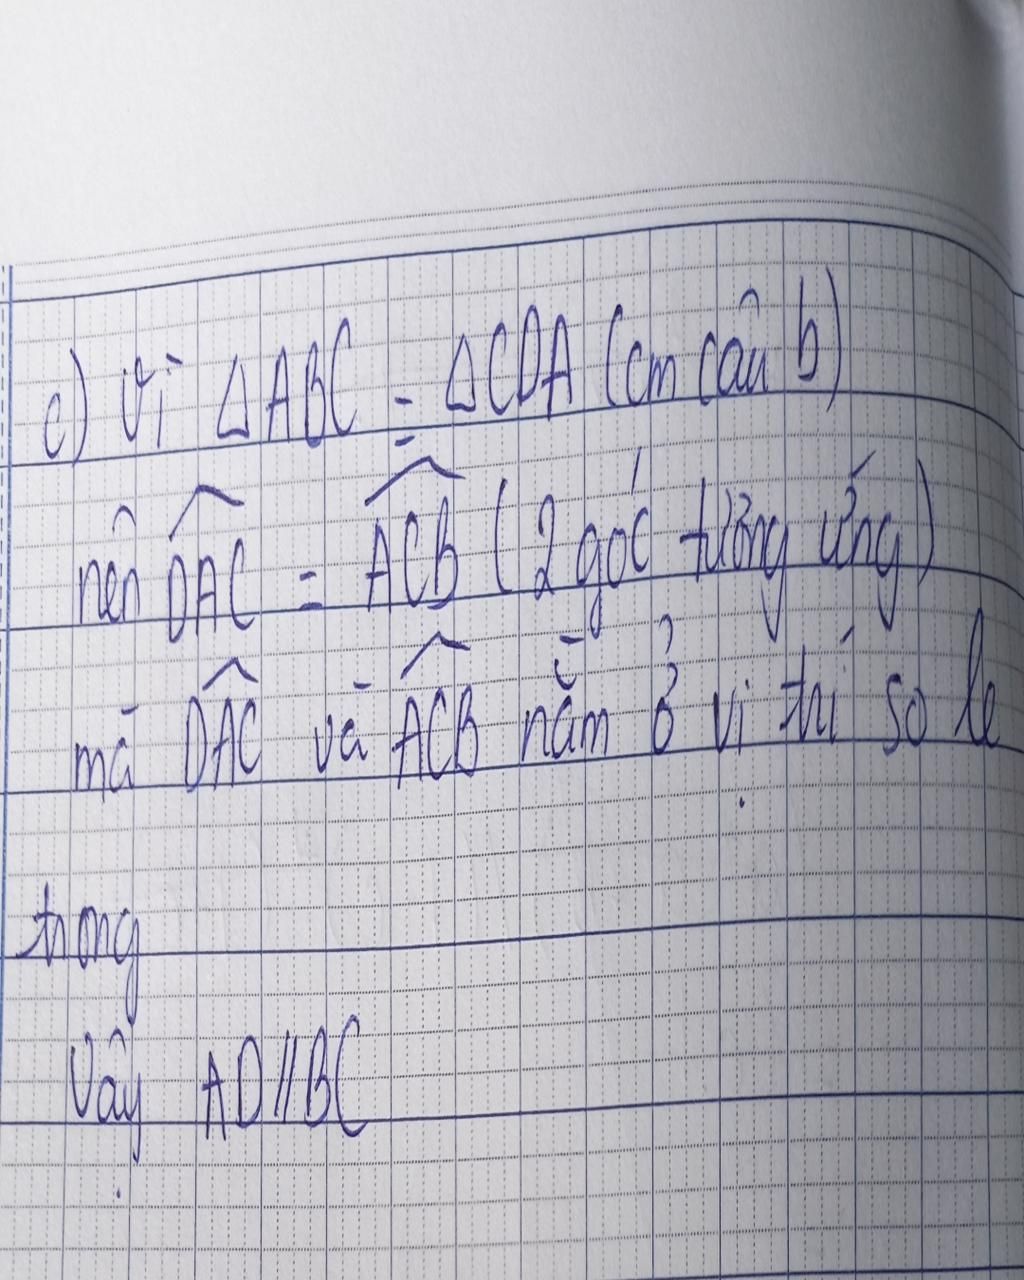 c) Vì △ABC = △CDA (cm câu b)
nên \widehat{DAC} = \widehat{ACB} (2 góc tương ứng)
mà \widehat{DAC} và \widehat{ACB} nằm ở vị trí so le
trong
Vậy AD // BC